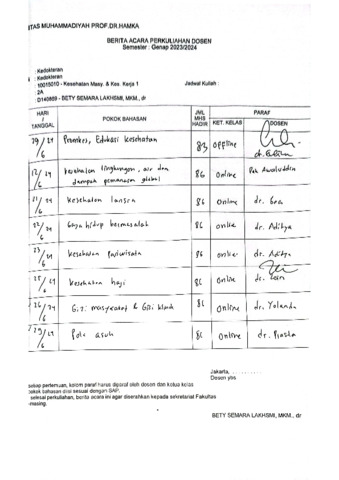 ITAS MUHAMMADIYAH PROF.DR.HAMKA
BERITA ACARA PERKULIAHAN DOSEN
Semester : Genap 2023/2024
: Kedokteran
: Kedokteran
: 10015010 - Kesehatan Masy. & Kes. Kerja 1 Jadwal Kuliah :
: 2A
: D140869 - BETY SEMARA LAKHSMI, MKM., dr
HARI / TANGGAL POKOK BAHASAN JML MHS HADIR KET. KELAS PARAF DOSEN
Promkes, Edukasi Kesehatan 83 Offline
kesehatan lingkungan, air dan dampak pemanasan global 86 Online Pak Awaluddin
kesehatan lansia 86 Online dr.
Gaya hidup bermasalah 86 online dr. Aditya
Kesehatan Pariwisata 86 online dr. Aditya
Kesehatan haji 86 online dr.
Gizi masyarakat & Gizi 86 Online dr. Yolanda
Pola asuh 86 Online dr.
Jakarta, ...........
Dosen ybs.
setiap pertemuan, kolom paraf harus diparaf oleh dosen dan ketua kelas
pokok bahasan diisi sesuai dengan SAP.
selesai perkuliahan, berita acara ini agar diserahkan kepada sekretariat Fakultas
-masing.
BETY SEMARA LAKHSMI, MKM., dr